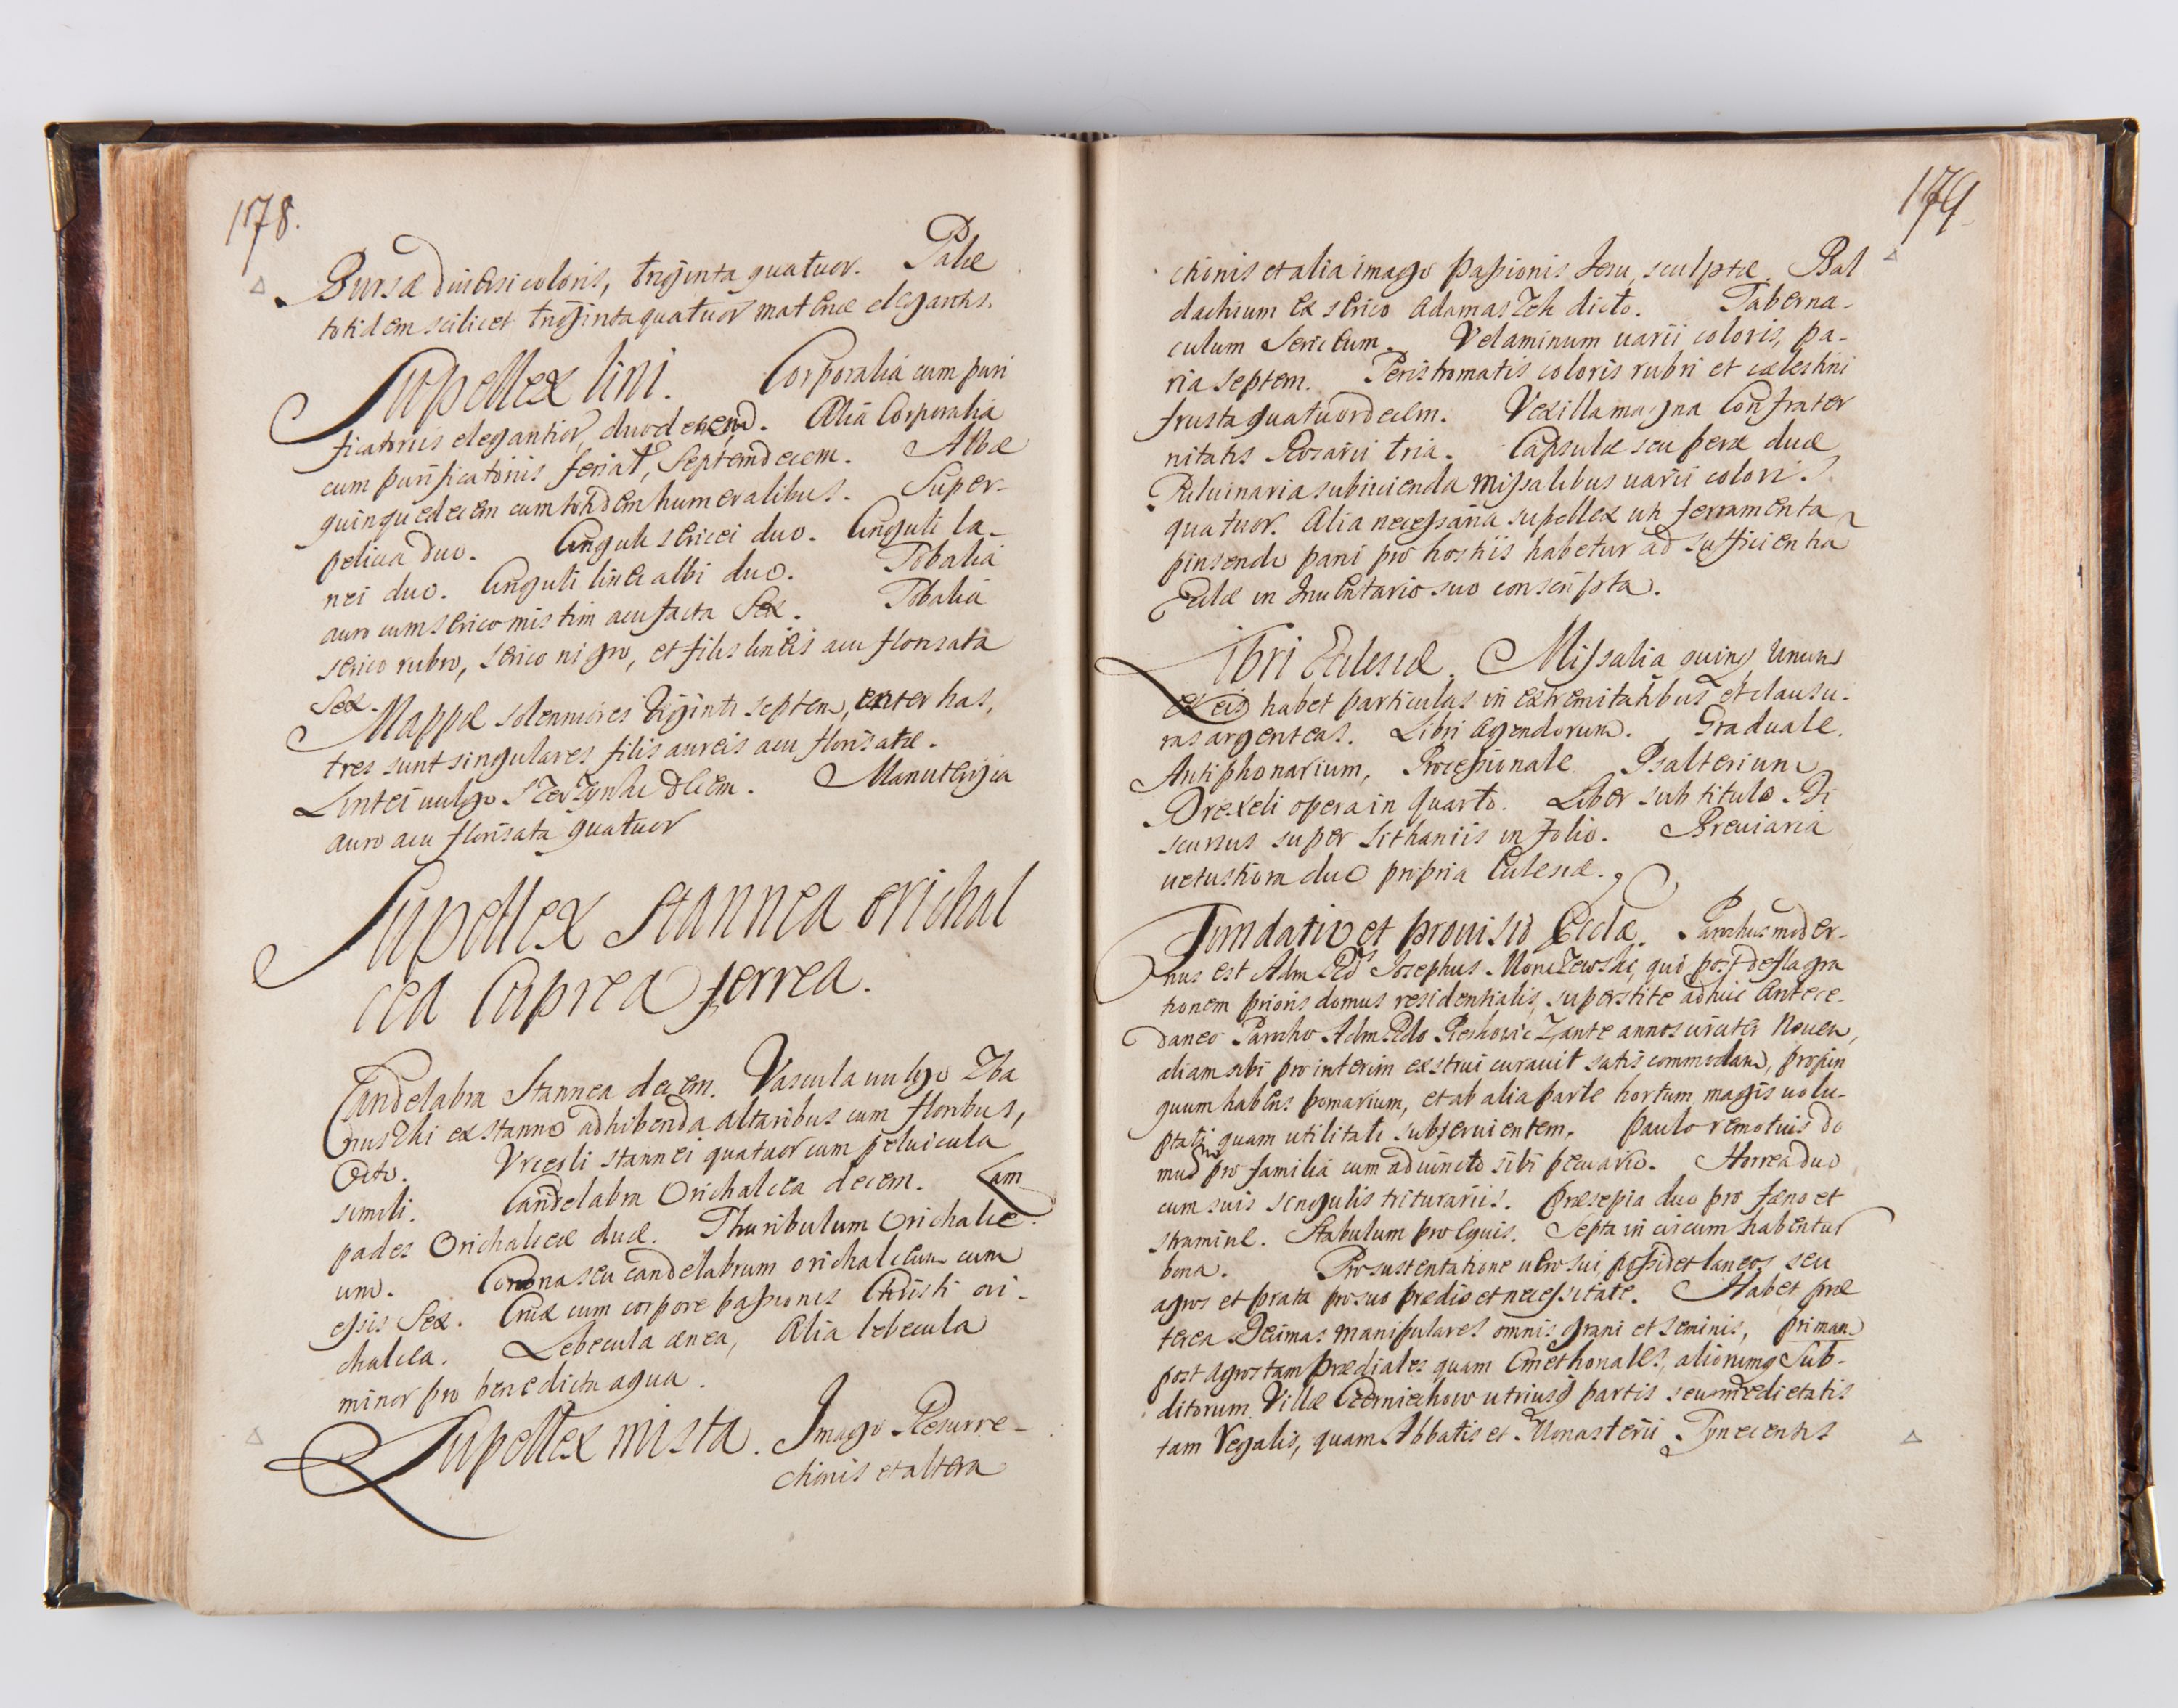 178.
Bursæ diuersi coloris, triginta quatuor. Palæ
totidem scilicet triginta quatuor materiæ elegantis.
Supellex lini. Corporalia cum puri
ficatoriis elegantior, duodecem. Alia Corporalia
cum purificatoriis feriat, Septemdecem. Albæ
quinquedecem cum totidem humeralibus. Super-
pelicia duo. Cinguli sericei duo. Cinguli la-
nei duo. Cinguli linei albi duo. Tobalia
auro cum serico mistim acu facta Sex. Tobalia
serico rubro, serico nigro, et filis lineis acu florisata
Sex.
Mappæ solenniores viginti septem, inter has,
tres sunt singulares filis aureis acu florisatæ.
Lintei uulgo decem. Manutergia
auro acu florisata quatuor
Supellex stannea orichal
cea Cuprea ferrea.
Candelabra Stannea decem. Vascula uulgo Zba
nuszki ex stanno adhibenda altaribus cum floribus,
Octo. Vrceoli stannei quatuor cum peluicula
simili. Candelabra Orichalcea decem. Lam
pades Orichalceæ duæ. Thuribulum Orichalce
um. Corona seu candelabrum orichalceum cum
Sex. Crux cum corpore passionis Christi ori-
chalcea. Lebecula ænea, Alia lebecula
minor pro benedicta aqua.
Supellex mista. Imago Resurre-
ctionis et altera
179
ctionis et alia imago passionis Jesu, sculptæ. Bal
dachium ex serico adamaszek dicto. Taberna-
culum sericeum. Velaminum uarii coloris, pa-
ria septem. Peristromatis coloris rubri et cælestini
frusta quatuordecem. Vexilla magna Confrater
nitatis Rosarii tria. Capsulæ seu peræ duæ
Puluinaria subiicienda missalibus uarii coloris
quatuor. Alia necessaria supellex uti ferramenta
pinsendo pani pro hostiis habetur ad sufficientia
Eccłæ in Inuentario suo conscripta.
Libri Ecclesiæ. Missalia quinq Unum
ex eis habet particulas in extremitatibus et clausu-
ras argenteas. Libri Agendorum. Graduale.
Antiphonarium, Processionale Psalterium
Drexeli opera in quarto. Liber sub titulo Di
scursus super Lithaniis in folio. Breuiaria
uetustiora duo propria Ecclesiæ.
Fundatio et prouisio Eccłæ. Parochus moder-
nus est Adm Rds Josephus qui post deflagra
tionem prioris domus residentialis, superstite adhuc antece-
daneo Parocho Adm Rdo ante annos circiter Nouem,
aliam sibi pro interim exstrui curauit satis commodam, propin
quum habens pomarium, et ab alia parte hortum magis uolu-
ptati quam utilitati subseruientem. Paulo remotius do
mus pro familia cum adiuncto sibi pecuario. Horrea duo
cum suis singulis triturariis. Præsepia duo pro fæno et
stramine. Stabulum pro Equis. Septa in circum habentur
bona. Pro sustentatione uero sui possidet laneos seu
agros et prata pro suo prædio et necessitate. Habet præ
terea Decimas manipulares omnis grani et seminis, primam
post agros tam prædiales quam Cmethonales, aliorumq Sub-
ditorum Villæ Czerniechow utriusq partis seu medietatis
tam Regalis, quam Abbatis et Monasterii Tynecensis